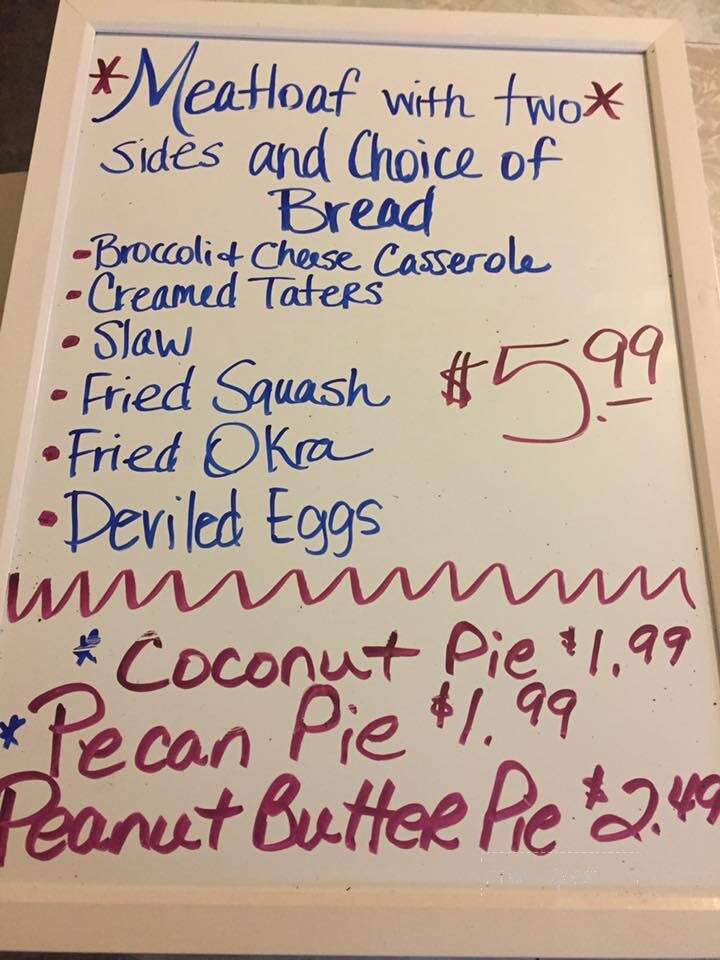 *Meatloaf with two*
sides and Choice of
Bread
-Broccoli & Cheese Casserole
-Creamed Taters
• Slaw
• Fried Squash
• Fried Okra
• Deviled Eggs
$5.99
* Coconut Pie $1.99
* Pecan Pie $1.99
Peanut Butter Pie $2.49